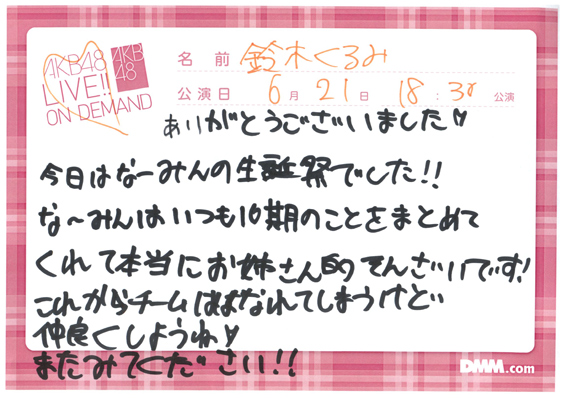 AKB48
LIVE!!
ON DEMAND
AKB
48
名前 鈴木くるみ
公演日 6月21日 18:30 公演
ありがとうございました♡
今日はなーみんの生誕祭でした!!
な〜みんはいつも16期のことをまとめて
くれて本当にお姉さん的そんざいです!
これからチームははなれてしまうけど
仲良くしようね♡
またみてください!!
DMM.com